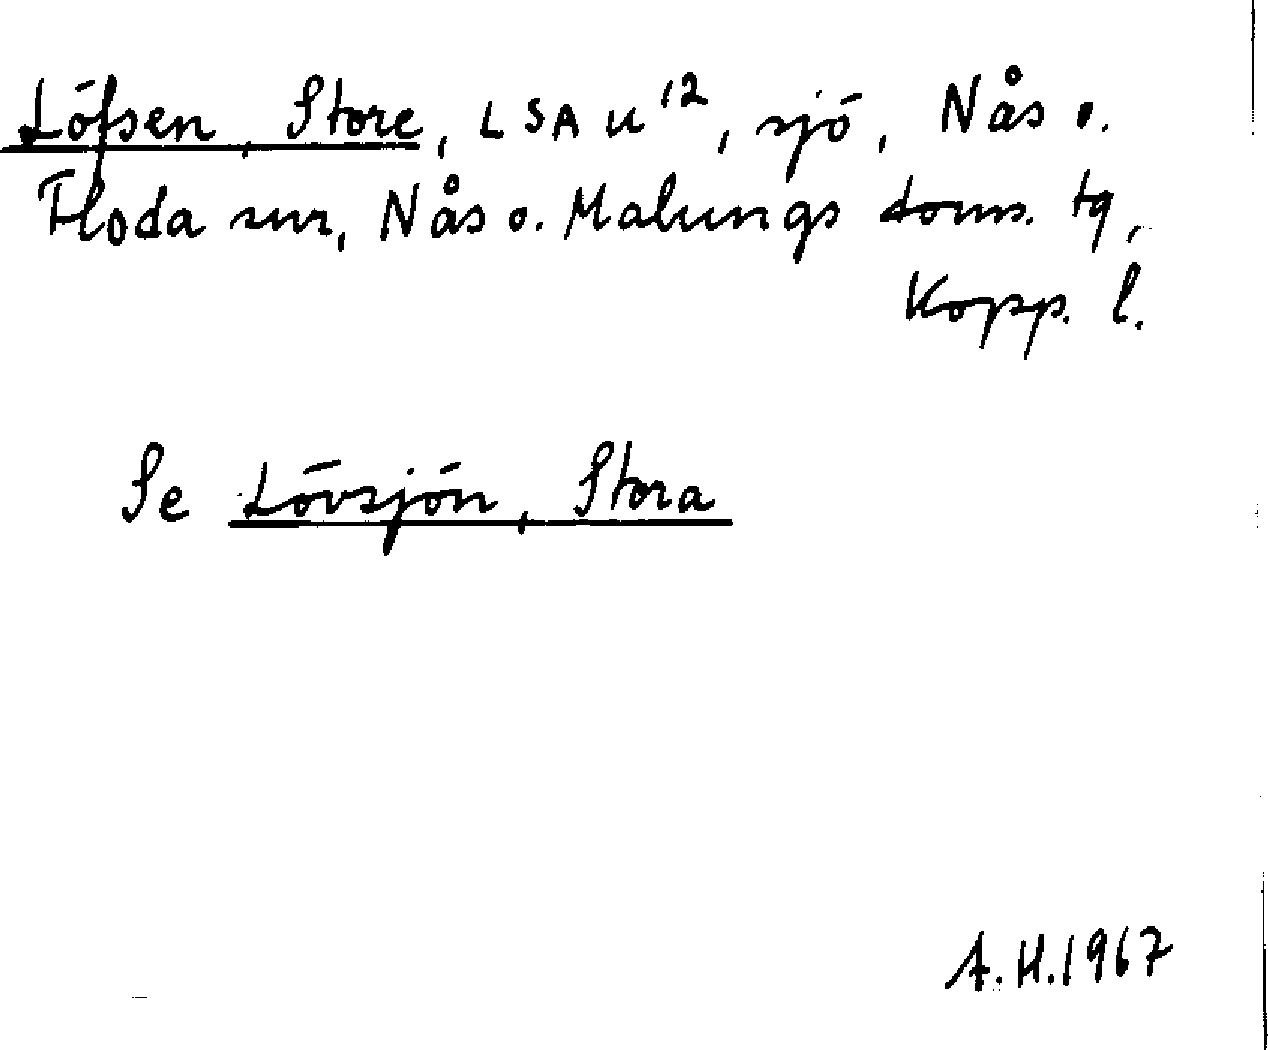 Löfsen, Store, LSA U¹², sjö, Nås o.
Floda snr, Nås o. Malungs doms. tg,
Kopp. l.
Se Lövsjön, Stora
A.H.1967